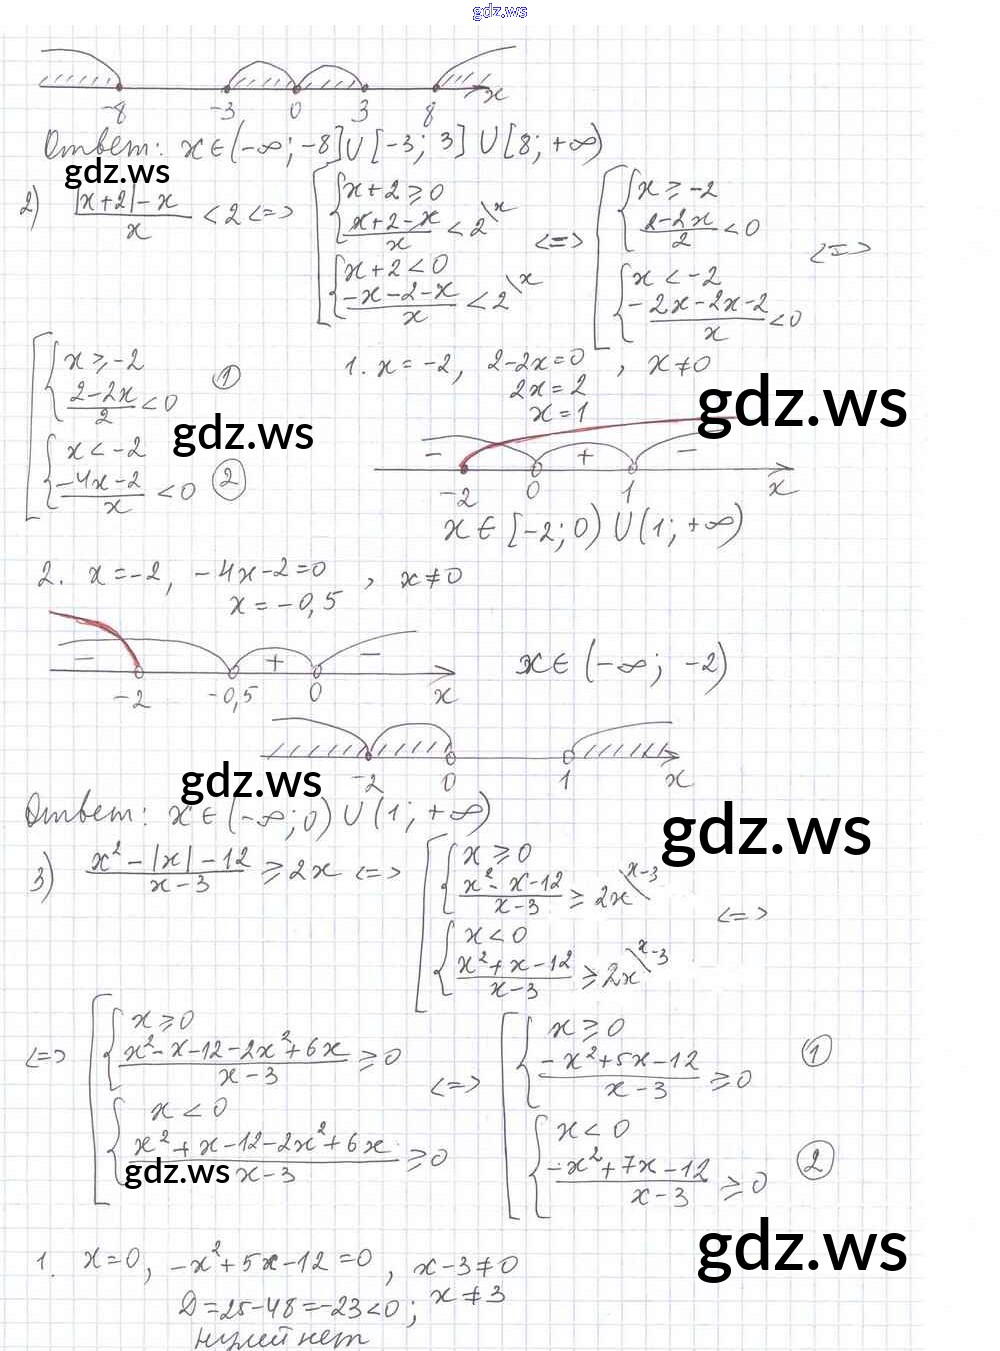 gdz.ws
-8 -3 0 3 8 x
Ответ: x∈(-∞; -8]∪[-3; 3]∪[8; +∞)
gdz.ws
2) |x+2|-x / x < 2 <=> [ { x+2≥0 ; x+2-x / x < 2\x ; { x+2<0 ; -x-2-x / x < 2\x <=> [ { x≥-2 ; 2-2x / 2 < 0 ; { x<-2 ; -2x-2x-2 / x < 0 <=>
[ { x≥-2 ; 2-2x / 2 < 0 ① ; { x<-2 ; -4x-2 / x < 0 ②
1. x=-2, 2-2x=0, x≠0
2x=2
x=1
gdz.ws
gdz.ws
- + -
-2 0 1 x
x∈[-2; 0)∪(1; +∞)
2. x=-2, -4x-2=0, x≠0
x=-0,5
- + -
-2 -0,5 0 x
x∈(-∞; -2)
-2 0 1 x
gdz.ws
Ответ: x∈(-∞; 0)∪(1; +∞)
gdz.ws
3) x²-|x|-12 / x-3 ≥ 2x <=> [ { x≥0 ; x²-x-12 / x-3 ≥ 2x\x-3 ; { x<0 ; x²+x-12 / x-3 ≥ 2x\x-3 <=>
<=> [ { x≥0 ; x²-x-12-2x²+6x / x-3 ≥ 0 ; { x<0 ; x²+x-12-2x²+6x / x-3 ≥ 0 <=> [ { x≥0 ; -x²+5x-12 / x-3 ≥ 0 ① ; { x<0 ; -x²+7x-12 / x-3 ≥ 0 ②
gdz.ws
gdz.ws
1. x=0, -x²+5x-12=0, x-3≠0
Д=25-48=-23<0; x≠3
нулей нет